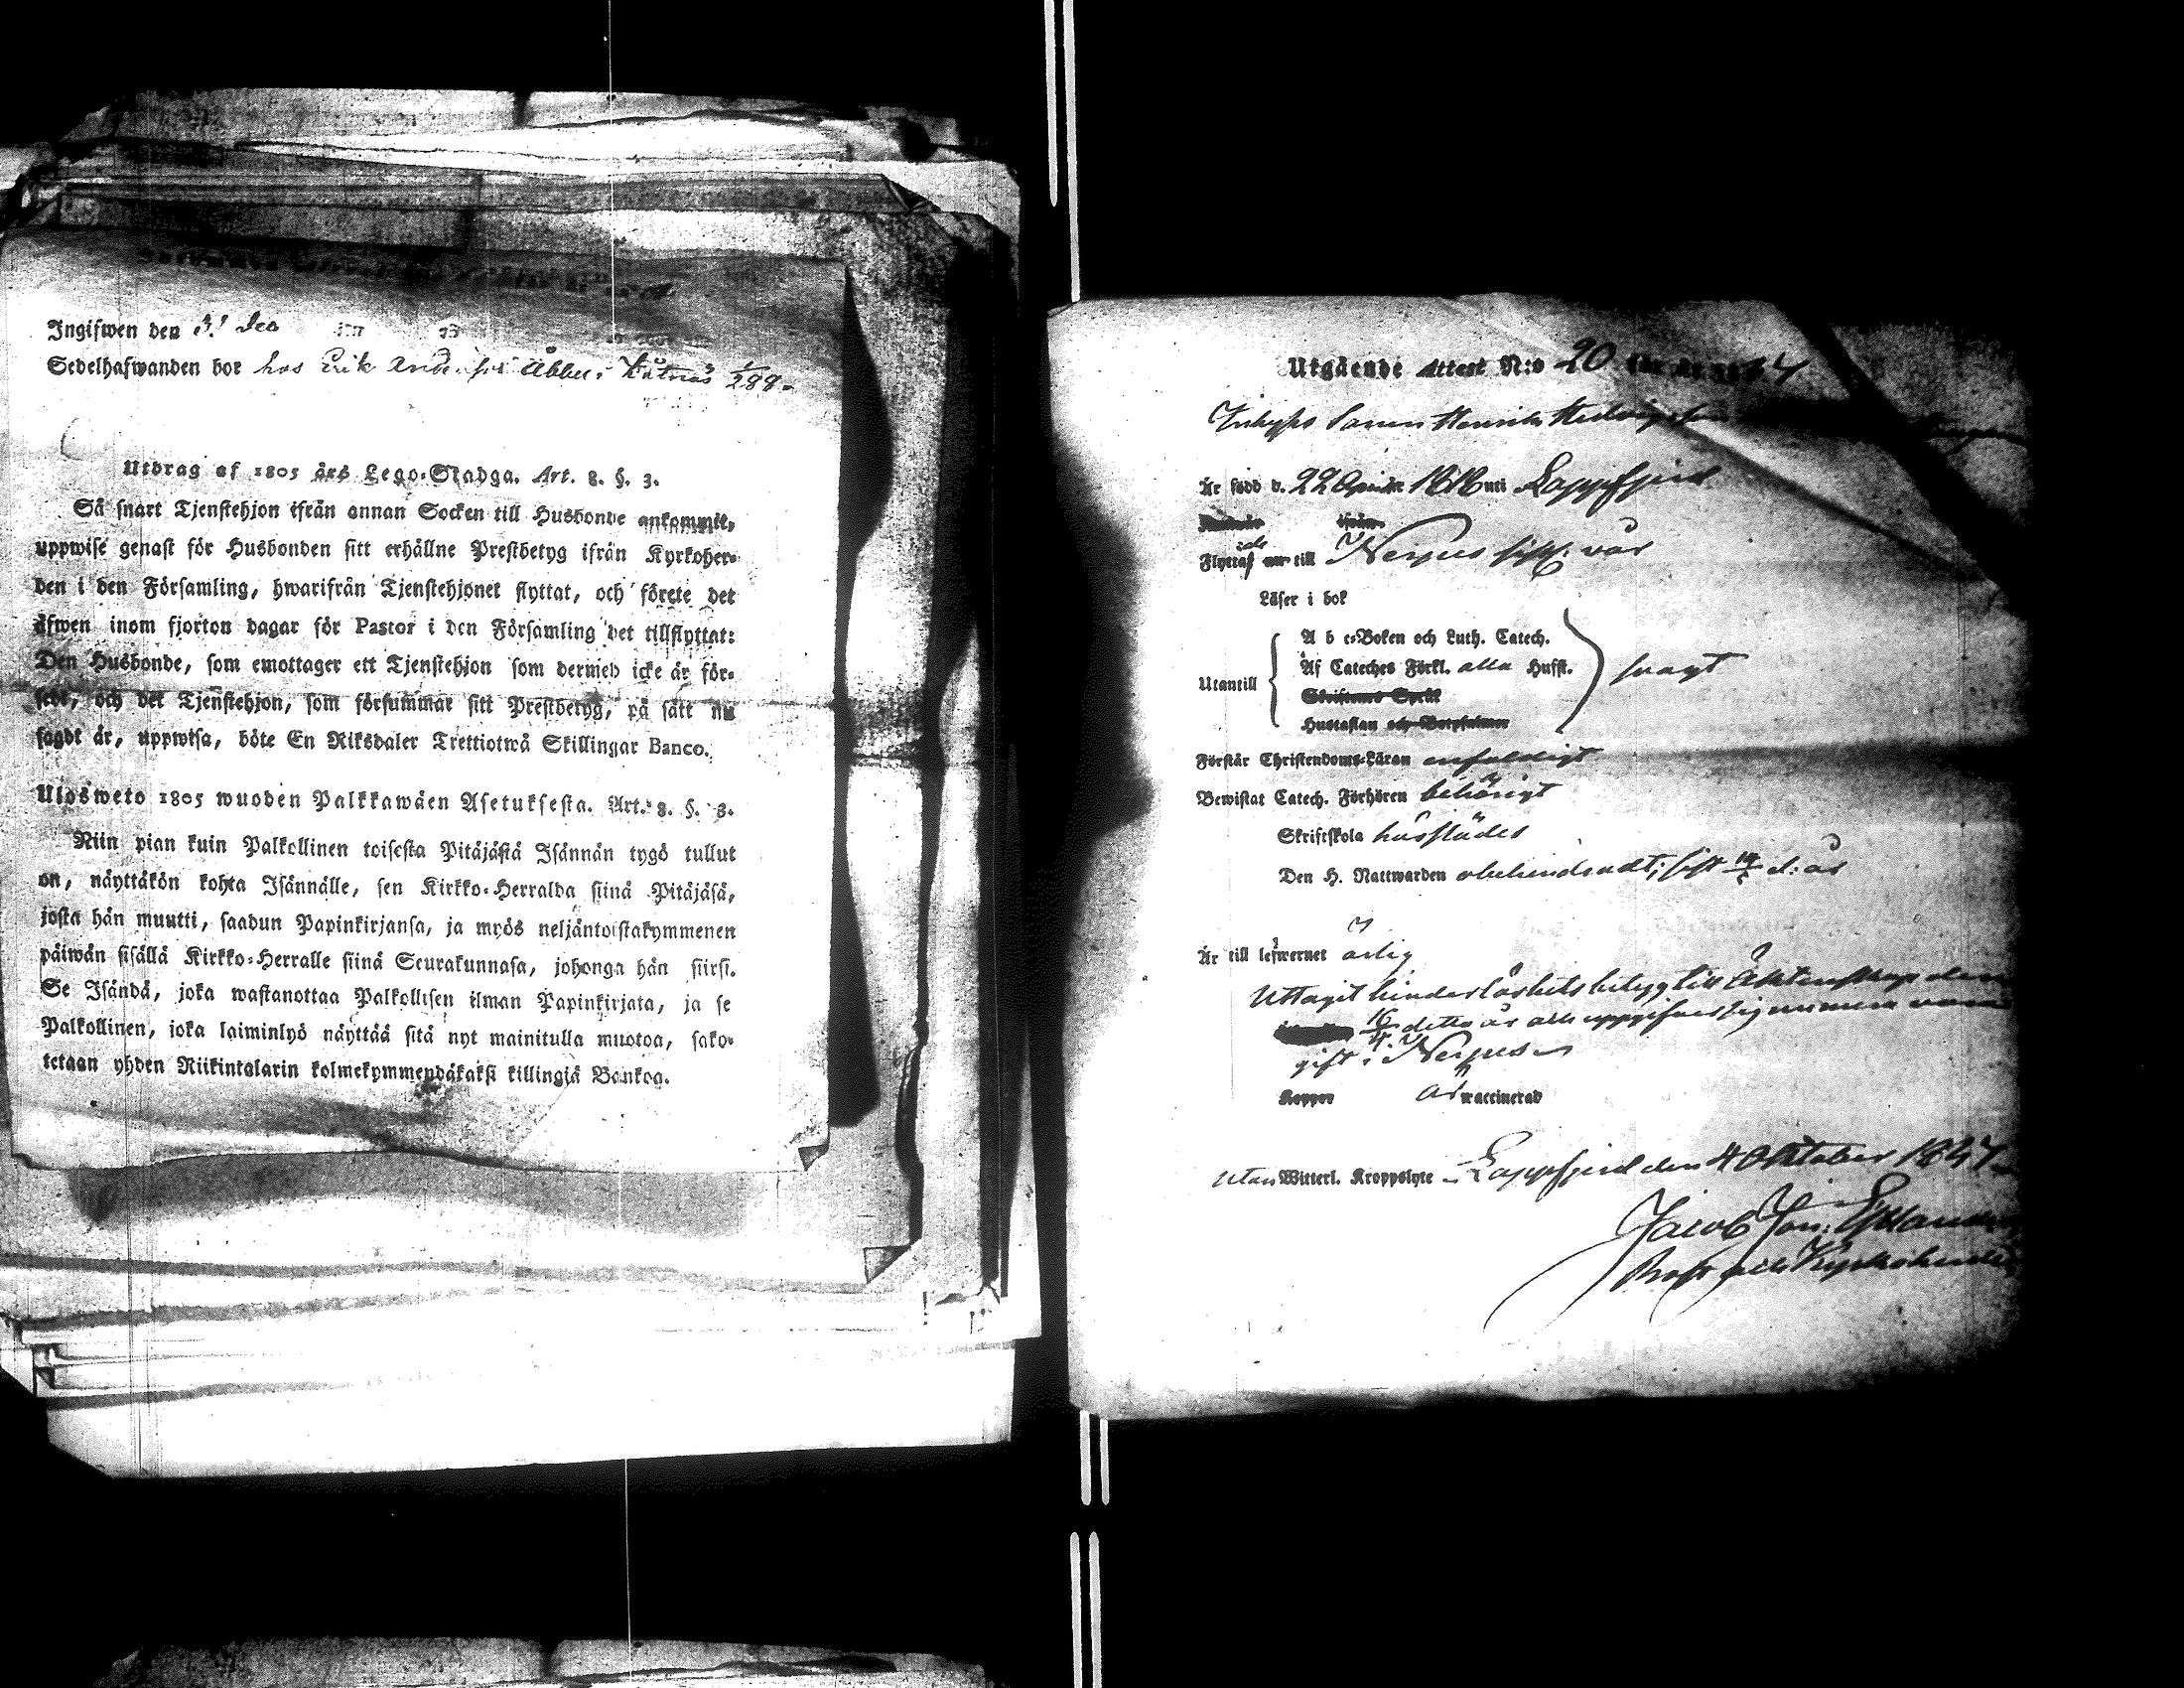 Ingifwen den 31 Dec
Sedelhafwanden bor hos Erik Åbbu i 1/288
Utdrag af 1805 års Lego-Stadga. Art. 8. §. 3.
Så snart Tjenstehjon ifrån annan Socken till Husbonde ankommit,
uppwise genast för Husbonden sitt erhållne Prestbetyg ifrån Kyrkoher-
den i den Församling, hwarifrån Tjenstehjonet flyttat, och förete det
äfwen inom fjorton dagar för Pastor i den Församling det tillflyttat:
Den Husbonde, som emottager ett Tjenstehjon som dermed icke är för-
sedt, och det Tjenstehjon, som försummar sitt Prestbetyg, på sätt nu
sagdt är, uppwisa, böte En Riksdaler Trettiotwå Skillingar Banco.
Ulosweto 1805 wuoden Palkkawäen Asetuksesta. Art. 8. §. 3.
Niin pian kuin Palkollinen toisesta Pitäjästä Isännän tygö tullut
on, näyttäkön kohta Isännälle, sen Kirkko-Herralda siinä Pitäjäsä,
josta hän muutti, saadun Papinkirjansa, ja myös neljäntoistakymmenen
päiwän sisällä Kirkko-Herralle siinä Seurakunnasa, johonga hän siirsi.
Se Isändä, joka wastanottaa Palkollisen ilman Papinkirjata, ja se
Palkollinen, joka laiminlyö näyttää sitä nyt mainitulla muotoa, sako-
tetaan yhden Riikintalarin kolmekymmendäkaksi killingiä Bankoa.
Utgående Attest N:o 20 för år
Inhyses Sonen Henrik
Är född d. 22 1818 uti Lappfjerd
ifrån
Flyttade till Nerpes sistl. vår
Läser i bok
A b c-Boken och Luth. Catech.
Af Cateches Förkl. alla Hufst.
Utantill svagt
Skriftenes Språk
Hustaflan och Botpsalmer
Förstår Christendoms-Läran enfaldigt
Bewistat Catech. Förhören behörigt
Skriftskola härstädes
Den H. Nattwarden obehindradt; sist d: år
Är till lefwernet ärlig
Uttagit hinderlöshets betyg till Äktenskap den
16/4 detta år och uppgifves sig numera vara
gift i Nerpes
Koppor är waccinerad
utan Witterl. Kroppslyte Lappfjerd den 4 Oktober
Jacob Jon.
Prost och Kyrkoherde